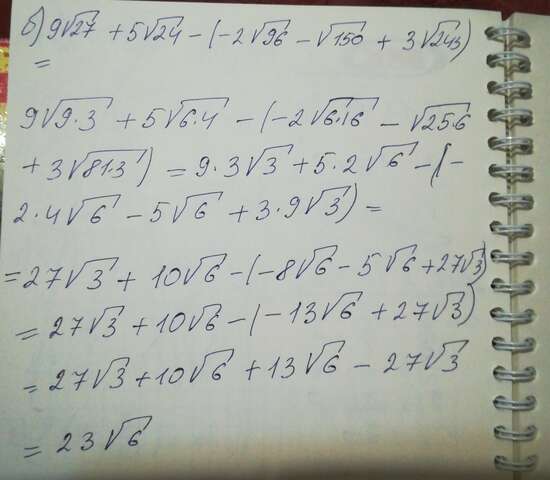 б) 9√27 + 5√24 - (-2√96 - √150 + 3√243)
=
9√9·3 + 5√6·4 - (-2√6·16 - √25·6
+ 3√81·3) = 9·3√3 + 5·2√6 - (-
2·4√6 - 5√6 + 3·9√3) =
= 27√3 + 10√6 - (-8√6 - 5√6 + 27√3)
= 27√3 + 10√6 - (-13√6 + 27√3)
= 27√3 + 10√6 + 13√6 - 27√3
= 23√6